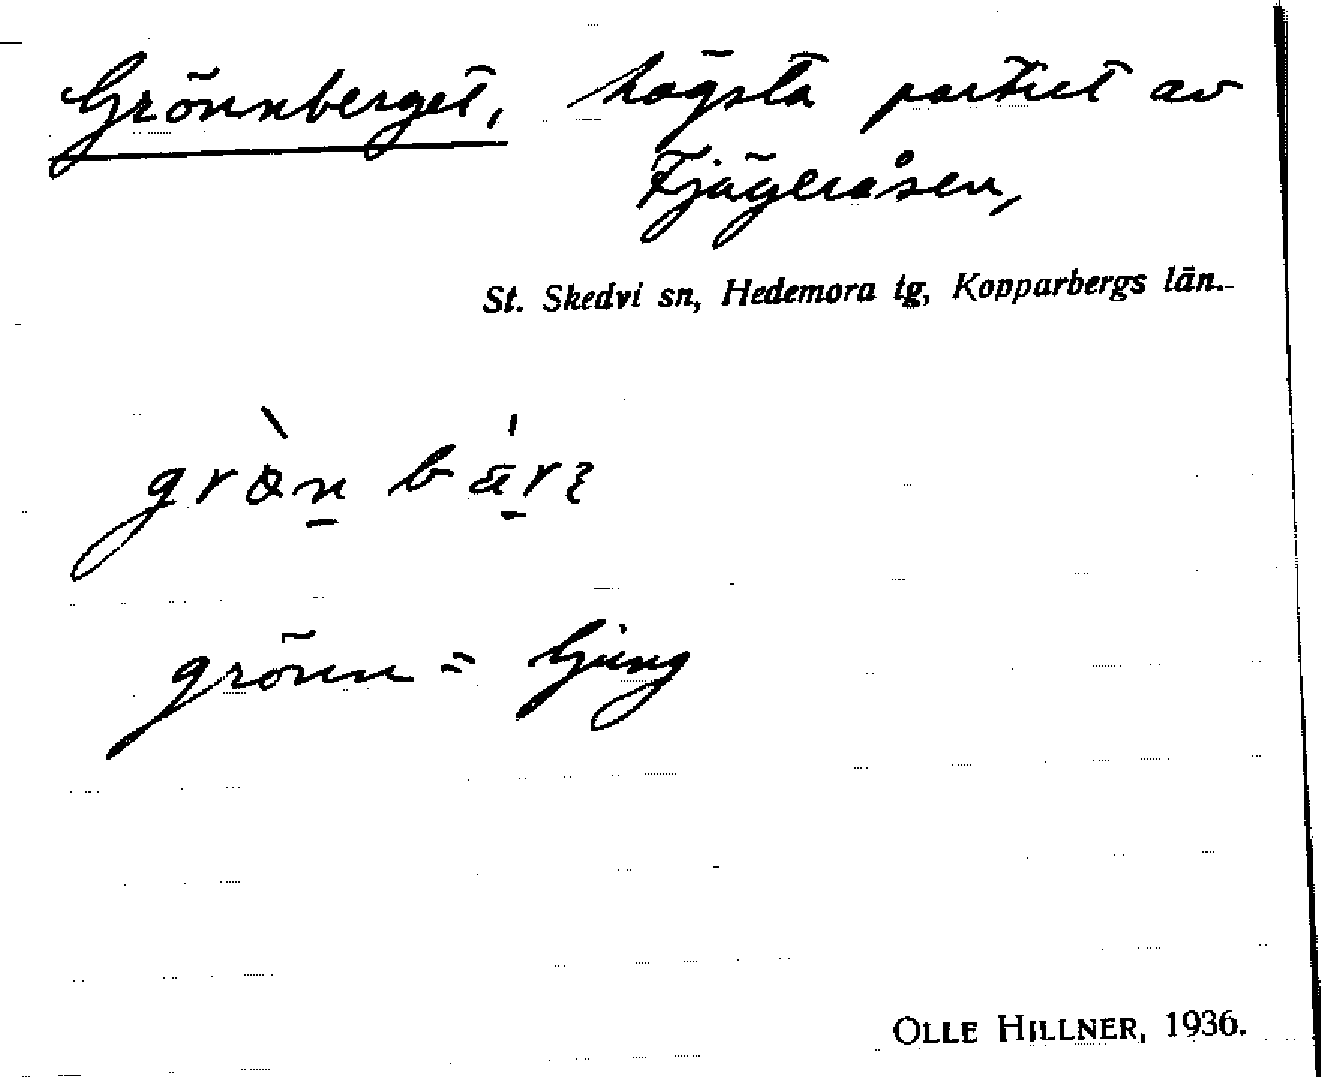 Grönnberget, högsta partiet av
Fjägeråsen,
St. Skedvi sn, Hedemora tg, Kopparbergs län.
grönn = ljung
OLLE HILLNER, 1936.